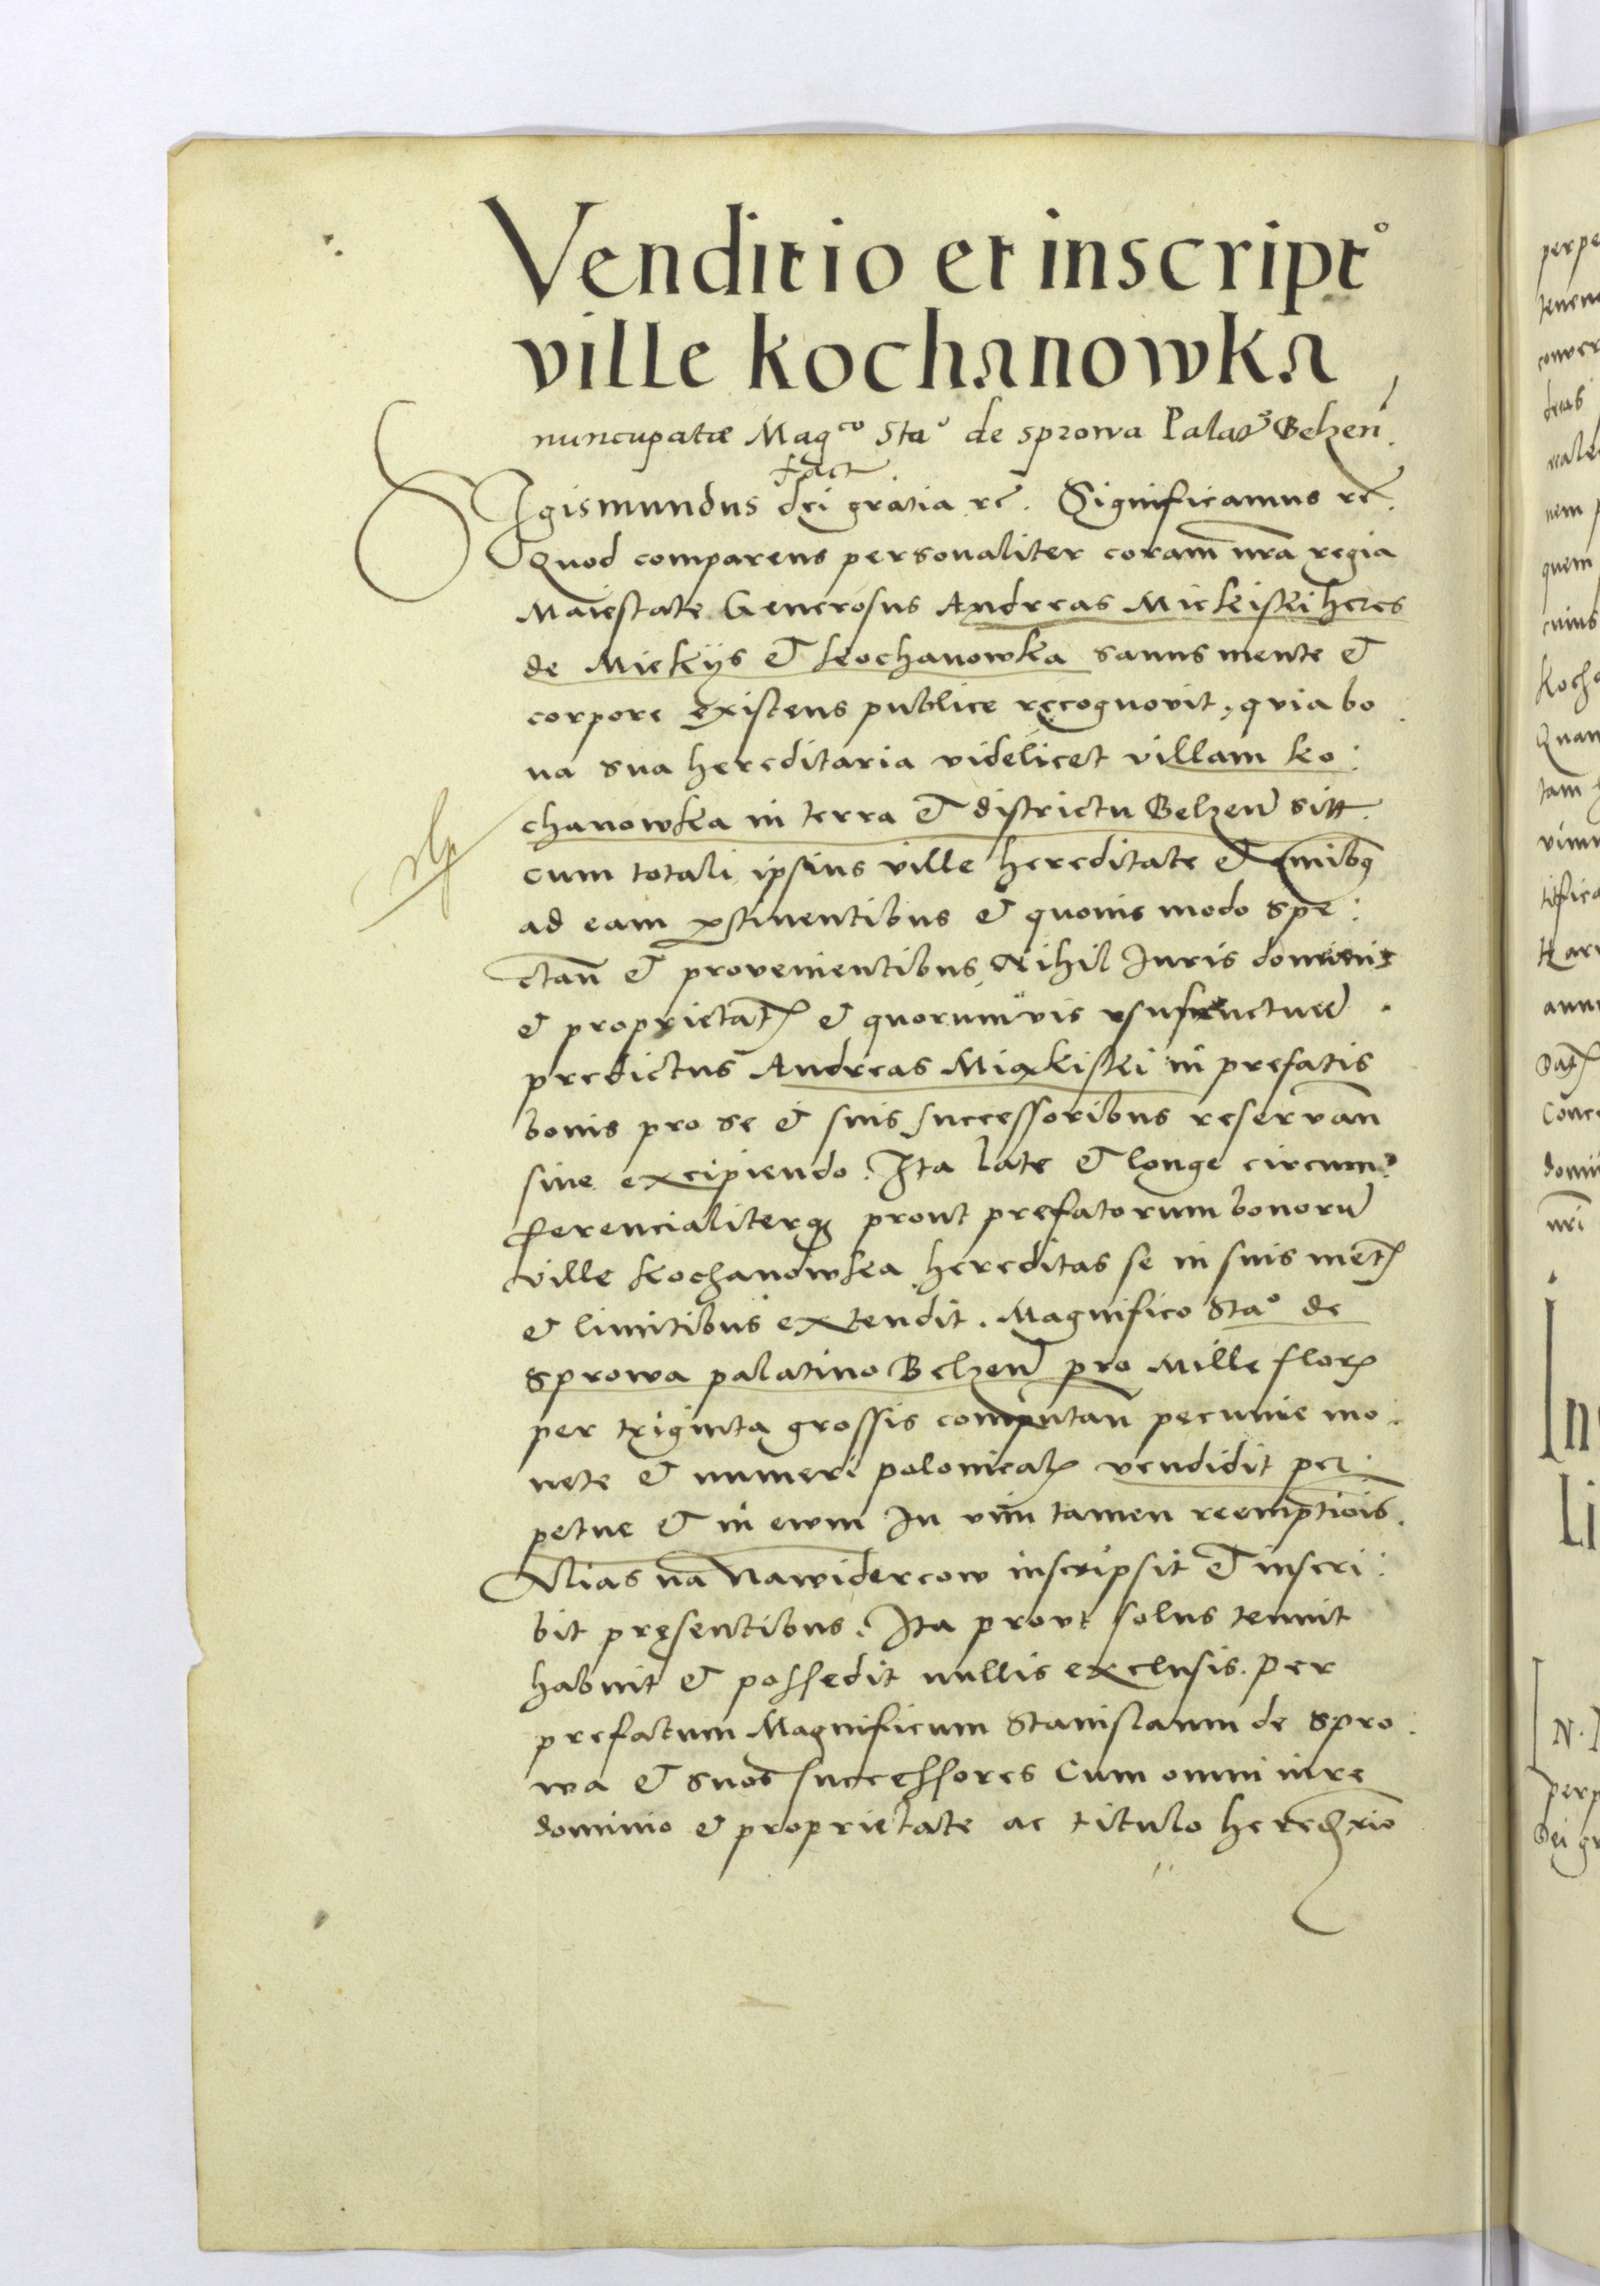 Venditio et inscript°
ville kochanowka
nuncupatæ Magco Sta° de sprowa Palat° Belzen̄.
fact
Sigismundus dei gratia rē. Significamus rē.
Quod comparens personaliter coram nr̄a regia
Maiestate Generosus Andreas Miekiski heres
de Miekijs & kochanowka sanus mente &
corpore existens publice recognovit, quia bo
na sua hereditaria videlicet villam ko:
chanowka in terra & districtu Belzen̄ sitt.
cum totali ipsius ville hereditate & omībq
ad eam ꝑtinentibus & quovis modo spe:
ctan̄ & provenientibus, Nihil Juris dominii
& proprietatꝭ & quorumvis vsufructuū.
predictus Andreas Miekiski in prefatis
bonis pro se & suis successoribus reservan̄
sive excipiendo. Ita late & longe circum:
ferencialiterqꝫ prout prefatorum bonorū
ville kochanowka hereditas se in suis metꝭ
& limitibus extendit. Magnifico Sta° de
Sprowa palatino Belzen̄ pro Mille florꝭ
per triginta grossis computan̄ pecunie mo:
nete & numeri polonicalꝭ vendidit per:
petue & in ewm In vim tamen reemptiōis.
Alias na Nawidercow inscripsit & inscri:
bit pręsentibus. Ita provt solus tenuit
habuit & possedit nullis exclusis. Per
prefatum Magnificum Stanislaum de Spro:
wa & suos successores Cum omni iure
dominio & proprietate ac titulo heredrio